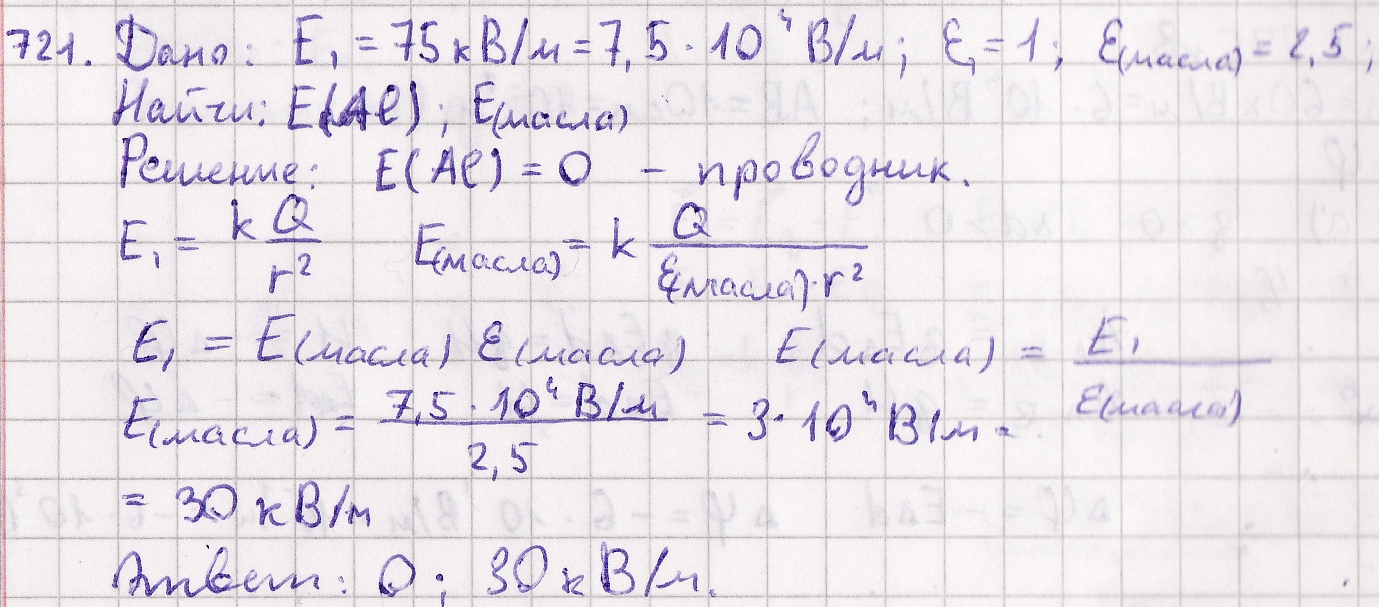 721. Дано: E₁ = 75 кВ/м = 7,5 · 10⁴ В/м; ε₁ = 1; ε(масла) = 2,5;
Найти: E(Al); E(масла)
Решение: E(Al) = 0 – проводник.
E₁ = k Q/r² E(масла) = k Q/(ε(масла)·r²)
E₁ = E(масла) ε(масла) E(масла) = E₁/ε(масла)
E(масла) = 7,5 · 10⁴ В/м / 2,5 = 3 · 10⁴ В/м =
= 30 кВ/м
Ответ: 0; 30 кВ/м.